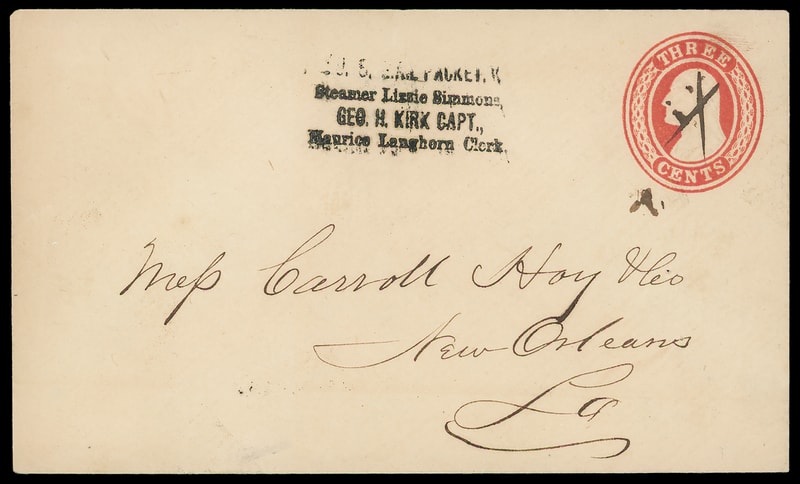 U. S. MAIL PACKET,
Steamer Lizzie Simmons,
GEO. H. KIRK CAPT.,
Maurice Langhorn Clerk.
THREE
CENTS
Mess Carroll Hoy & Co
New Orleans
La